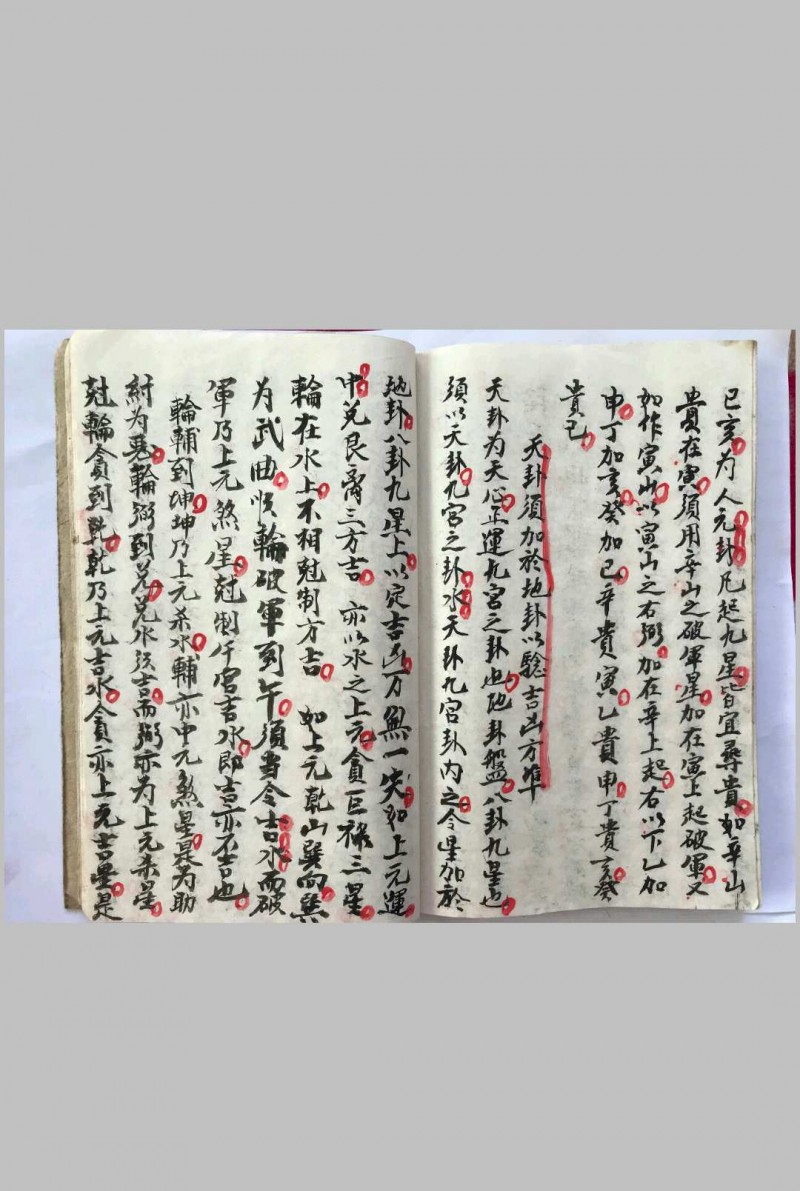 巳亥为人元卦凡起九星皆宜尋贵如辛山
貴在寅須用辛山之破軍星加在寅上起破軍又
如作寅山以寅山之右弼加在辛上起右以下乙加
申丁加亥癸加巳辛貴寅乙貴申丁貴亥癸
貴巳
天卦須加於地卦以騐吉凶方準
天卦为天心正運九宫之卦也地卦盤八卦九星也
須以天卦九宫之卦水天卦九宫卦内之令星加於
地卦八卦九星上以定吉凶万無一失如上元運
中兑艮离三方吉亦以水之上元貪巨禄三星
輪在水上不相尅制方吉如上元乾山巽向巽
为武曲順輪破軍到午須当令吉水而破
軍乃上元煞星尅制午宫吉水即吉亦不吉也
輪輔到坤坤乃上元杀水輔亦中元煞星是为助
紂为惡輪弼到兑兑水須吉而弼亦为上元杀星
尅輪貪到乾乾乃上元吉水貪亦上元吉星是